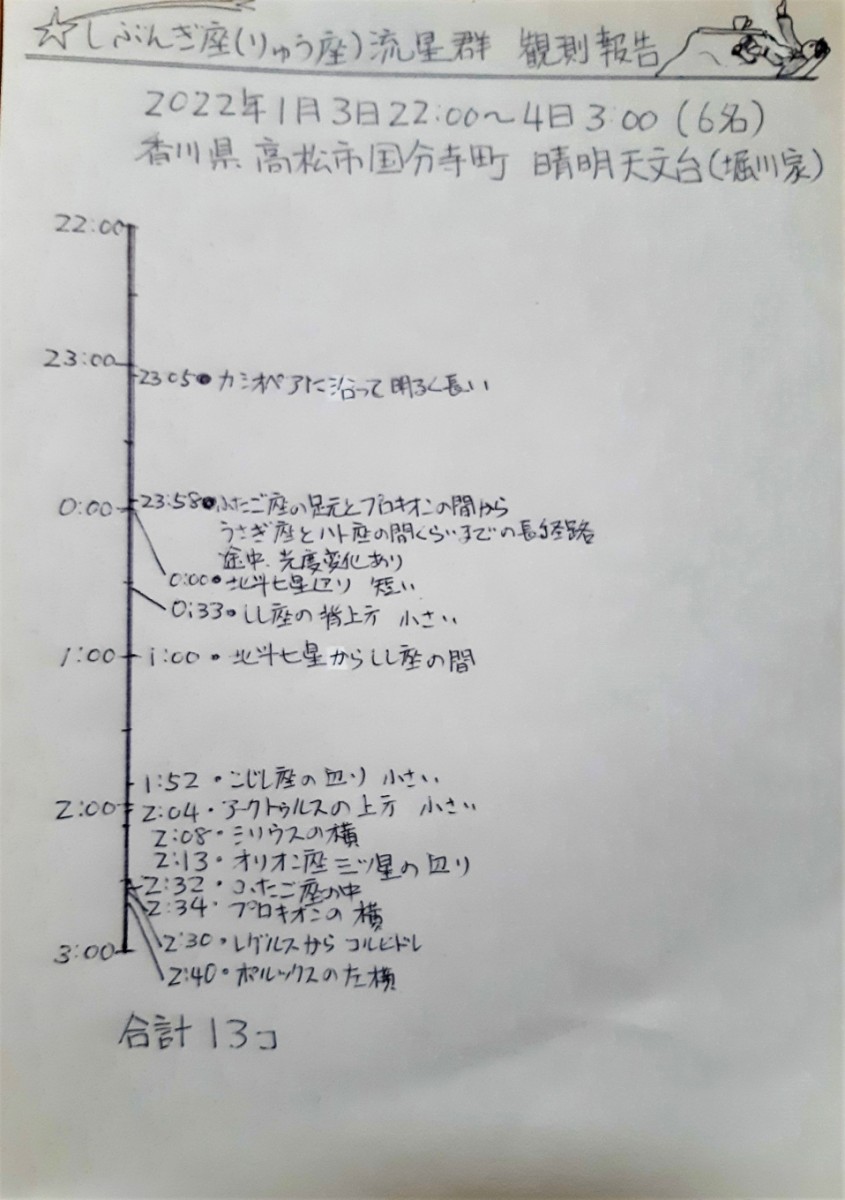 ☆しぶんぎ座(りゅう座)流星群 観測報告
2022年1月3日22:00～4日3:00(6名)
香川県高松市国分寺町 晴明天文台(堀川家)
22:00
23:00
23:05●カシオペアに沿って明るく長い
0:00
23:58●ふたご座の足元とプロキオンの間から
うさぎ座とハト座の間くらいまでの長い経路
途中、光度変化あり
0:00・北斗七星辺り 短い
0:33・しし座の背上方 小さい
1:00
1:00・北斗七星からしし座の間
1:52・こじし座の辺り 小さい
2:00
2:04・アークトゥルスの上方 小さい
2:08・シリウスの横
2:13・オリオン座三ツ星の辺り
2:32・ふたご座の中
2:34・プロキオンの横
2:30・レグルスからコルヒドレ
3:00
2:40・ポルックスの左横
合計13コ